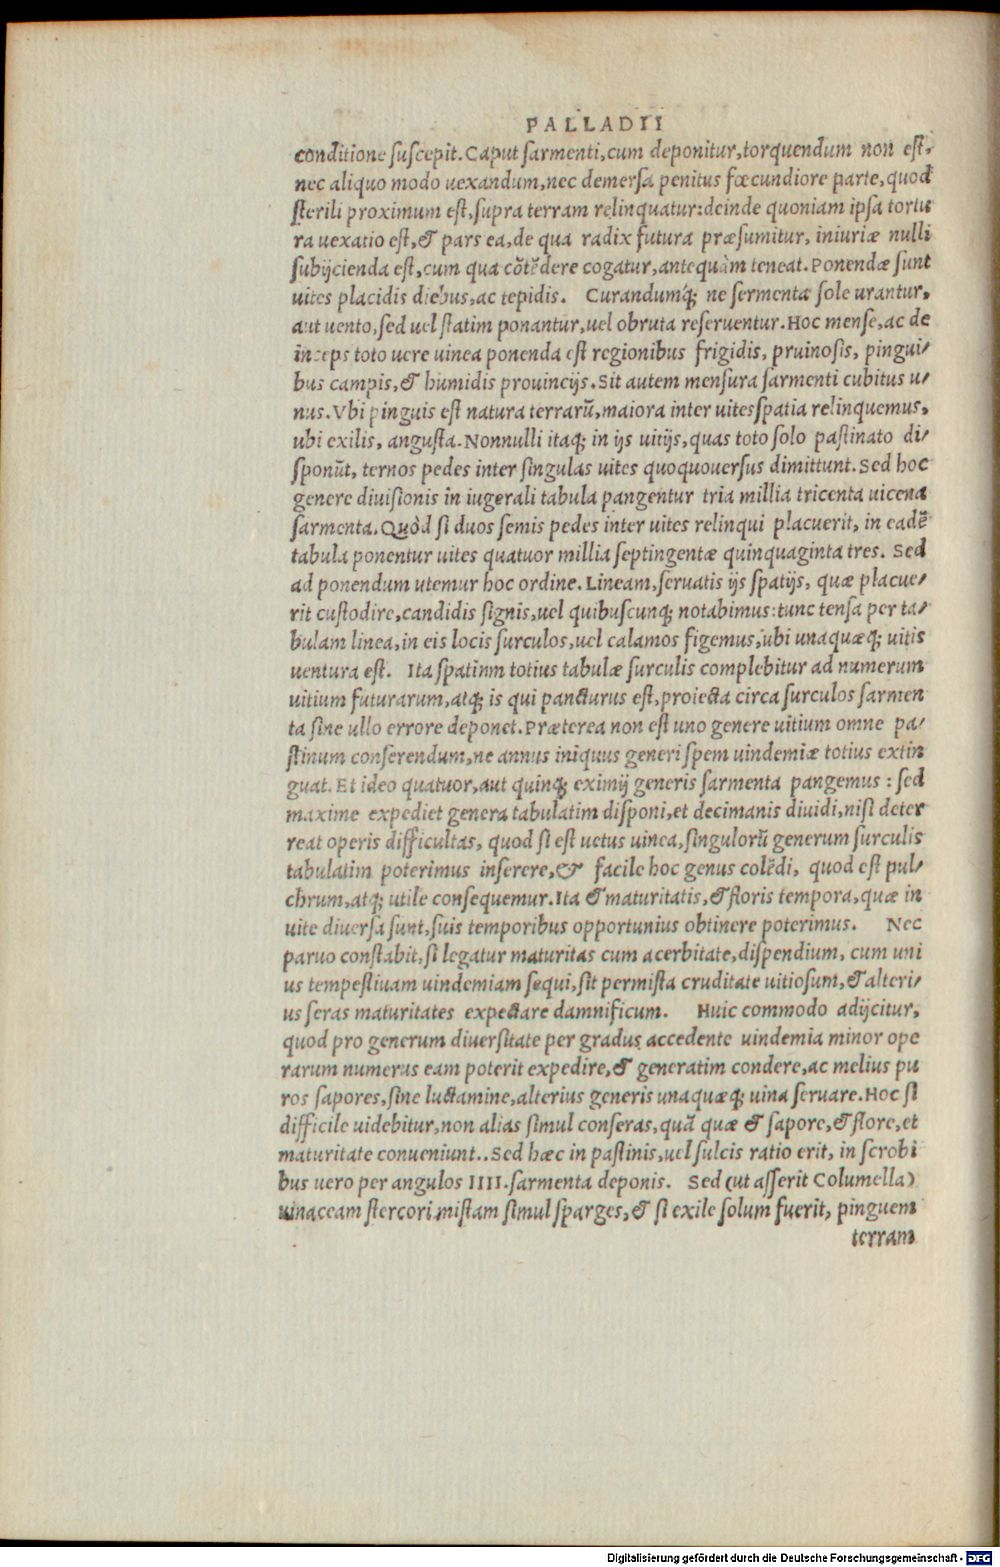 PALLADII
conditione suscepit. Caput sarmenti, cum deponitur, torquendum non est,
nec aliquo modo uexandum, nec demersa penitus fœcundiore parte, quod
sterili proximum est, supra terram relinquatur: deinde quoniam ipsa tortu
ra uexatio est, & pars ea, de qua radix futura præsumitur, iniuriæ nulli
subijcienda est, cum qua cõtẽdere cogatur, antequàm teneat. Ponendæ sunt
uites placidis diebus, ac tepidis. Curandumq́; ne sermenta sole urantur,
aut uento, sed uel statim ponantur, uel obruta reseruentur. Hoc mense, ac de
inceps toto uere uinea ponenda est regionibus frigidis, pruinosis, pingui/
bus campis, & humidis prouincijs. Sit autem mensura sarmenti cubitus u/
nus. Vbi pinguis est natura terrarũ, maiora inter uites spatia relinquemus,
ubi exilis, angusta. Nonnulli itaq; in ijs uitijs, quas toto solo pastinato di/
sponũt, ternos pedes inter singulas uites quoquouersus dimittunt. Sed hoc
genere diuisionis in iugerali tabula pangentur tria millia tricenta uicena
sarmenta. Quòd si duos semis pedes inter uites relinqui placuerit, in eadẽ
tabula ponentur uites quatuor millia septingentæ quinquaginta tres. Sed
ad ponendum utemur hoc ordine. Lineam, seruatis ijs spatijs, quæ placue/
rit custodire, candidis signis, uel quibuscunq; notabimus: tunc tensa per ta/
bulam linea, in eis locis surculos, uel calamos figemus, ubi unaquæq; uitis
uentura est. Ita spatinm totius tabulæ surculis complebitur ad numerum
uitium futurarum, atq; is qui pancturus est, proiecta circa surculos sarmen
ta sine ullo errore deponet. Præterea non est uno genere uitium omne pa/
stinum conserendum, ne annus iniquus generi spem uindemiæ totius extin
guat. Et ideo quatuor, aut quinq; eximij generis sarmenta pangemus : sed
maxime expediet genera tabulatim disponi, et decimanis diuidi, nisi deter
reat operis difficultas, quod si est uetus uinea, singulorũ generum surculis
tabulatim poterimus inserere, & facile hoc genus colẽdi, quod est pul/
chrum, atq; utile consequemur. Ita & maturitatis, & floris tempora, quæ in
uite diuersa sunt, suis temporibus opportunius obtinere poterimus. Nec
paruo constabit, si legatur maturitas cum acerbitate, dispendium, cum uni
us tempestiuam uindemiam sequi, sit permista cruditate uitiosum, & alteri/
us seras maturitates expectare damnificum. Huic commodo adijcitur,
quod pro generum diuersitate per gradus accedente uindemia minor ope
rarum numerus eam poterit expedire, & generatim condere, ac melius pu
ros sapores, sine luctamine, alterius generis unaquæq; uina seruare. Hoc si
difficile uidebitur, non alias simul conseras, quã quæ & sapore, & flore, et
maturitate conueniunt.. Sed hæc in pastinis, uel sulcis ratio erit, in scrobi
bus uero per angulos IIII. sarmenta deponis. Sed (ut asserit Columella)
uinaceam stercori mistam simul sparges, & si exile solum fuerit, pinguem
terram
Digitalisierung gefördert durch die Deutsche Forschungsgemeinschaft - DFG